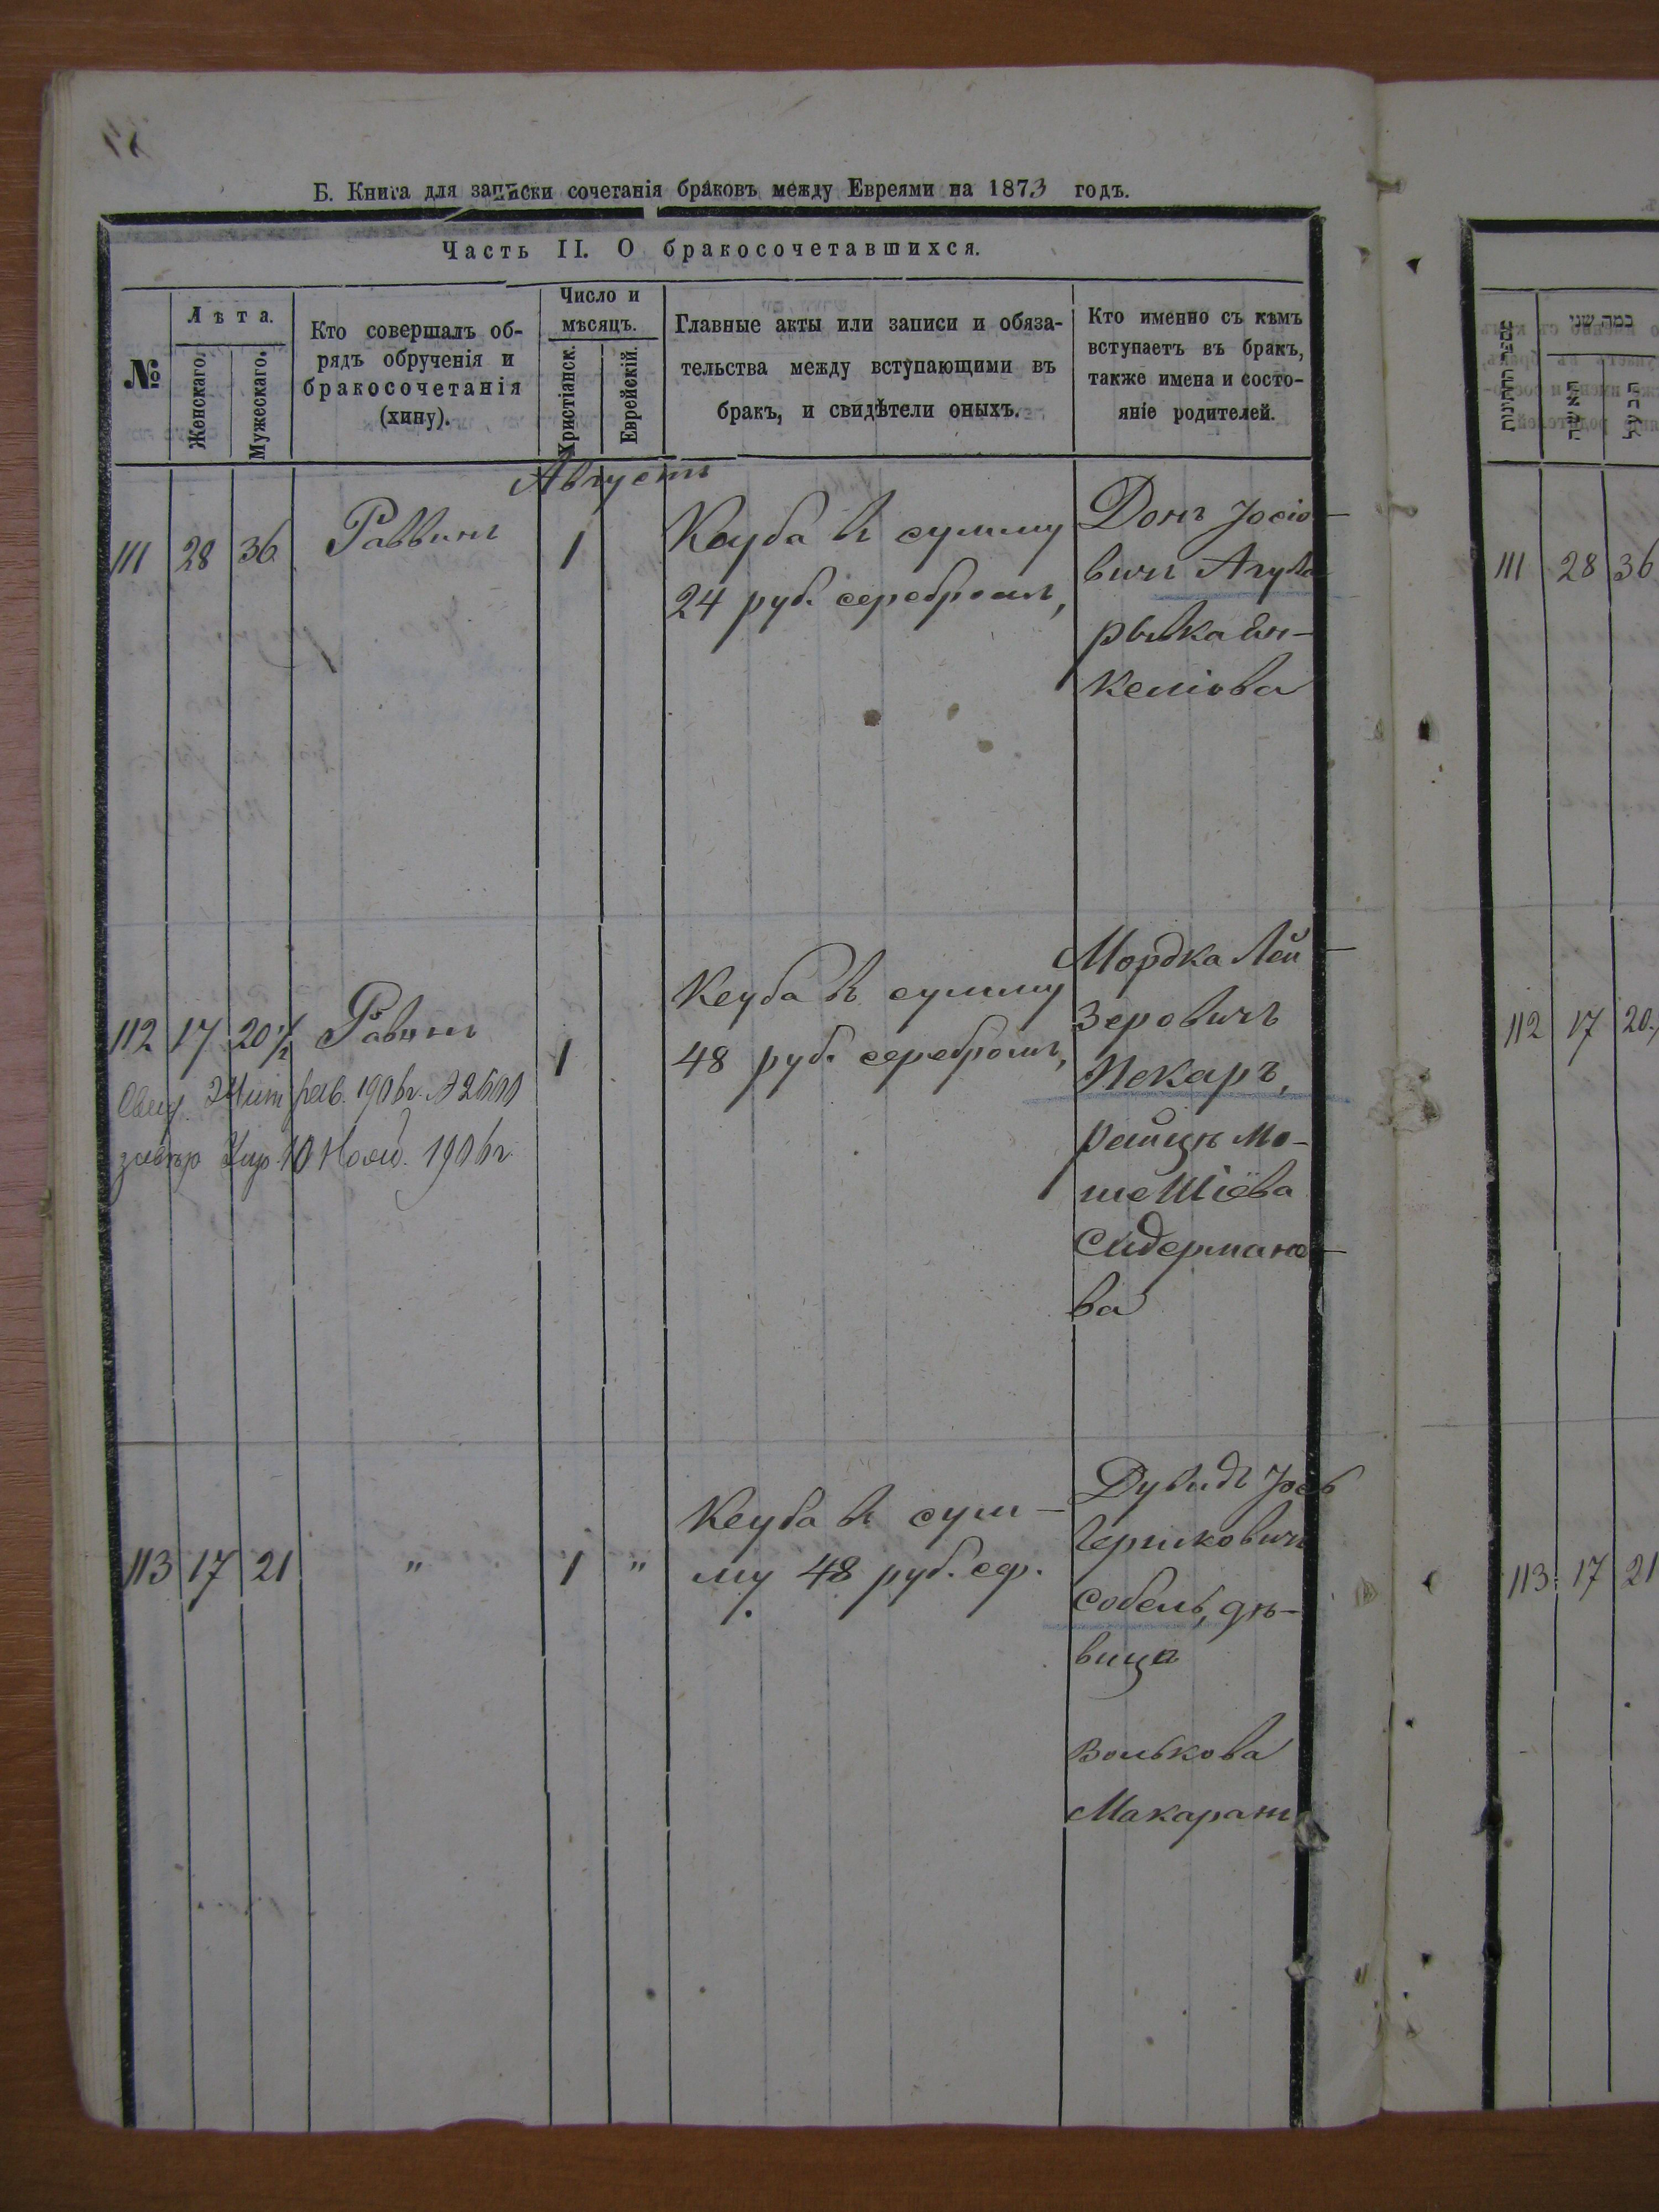 Б. Книга для записки сочетанія браковъ между Евреями на 1873 годъ.
Часть II. О бракосочетавшихся.
№
Лѣта.
Женскаго.
Мужескаго.
Кто совершалъ об-
рядъ обрученія и
бракосочетанія
(хипу).
Число и
мѣсяцъ.
Христіанск.
Еврейскій.
Главные акты или записи и обяза-
тельства между вступающими въ
бракъ, и свидѣтели оныхъ.
Кто именно съ кѣмъ
вступаетъ въ бракъ,
также имена и состо-
яніе родителей.
Августъ
111 28 36 Раввинъ 1
Кеуба въ сумму
24 руб. серебромъ,
Донъ Іосіо-
вичъ
келіова
112 17 20½ Равинъ 1
Кеуба въ сумму
48 руб. серебромъ,
Мордка Лей-
зеровичъ
Пекаръ,
рейця Мо-
шеШіёва
Сидермано-
ва
190 г.
10 Нояб. 190 г.
113 17 21 " 1 "
Кеуба въ сум-
му 48 руб. ср.
Дувидъ Іось
Гершковичъ
Собель, дѣ-
вица
Волькова
Макаранъ
כמה שני
האשה
הבעל
111 28 36
112 17 20
113 17 21